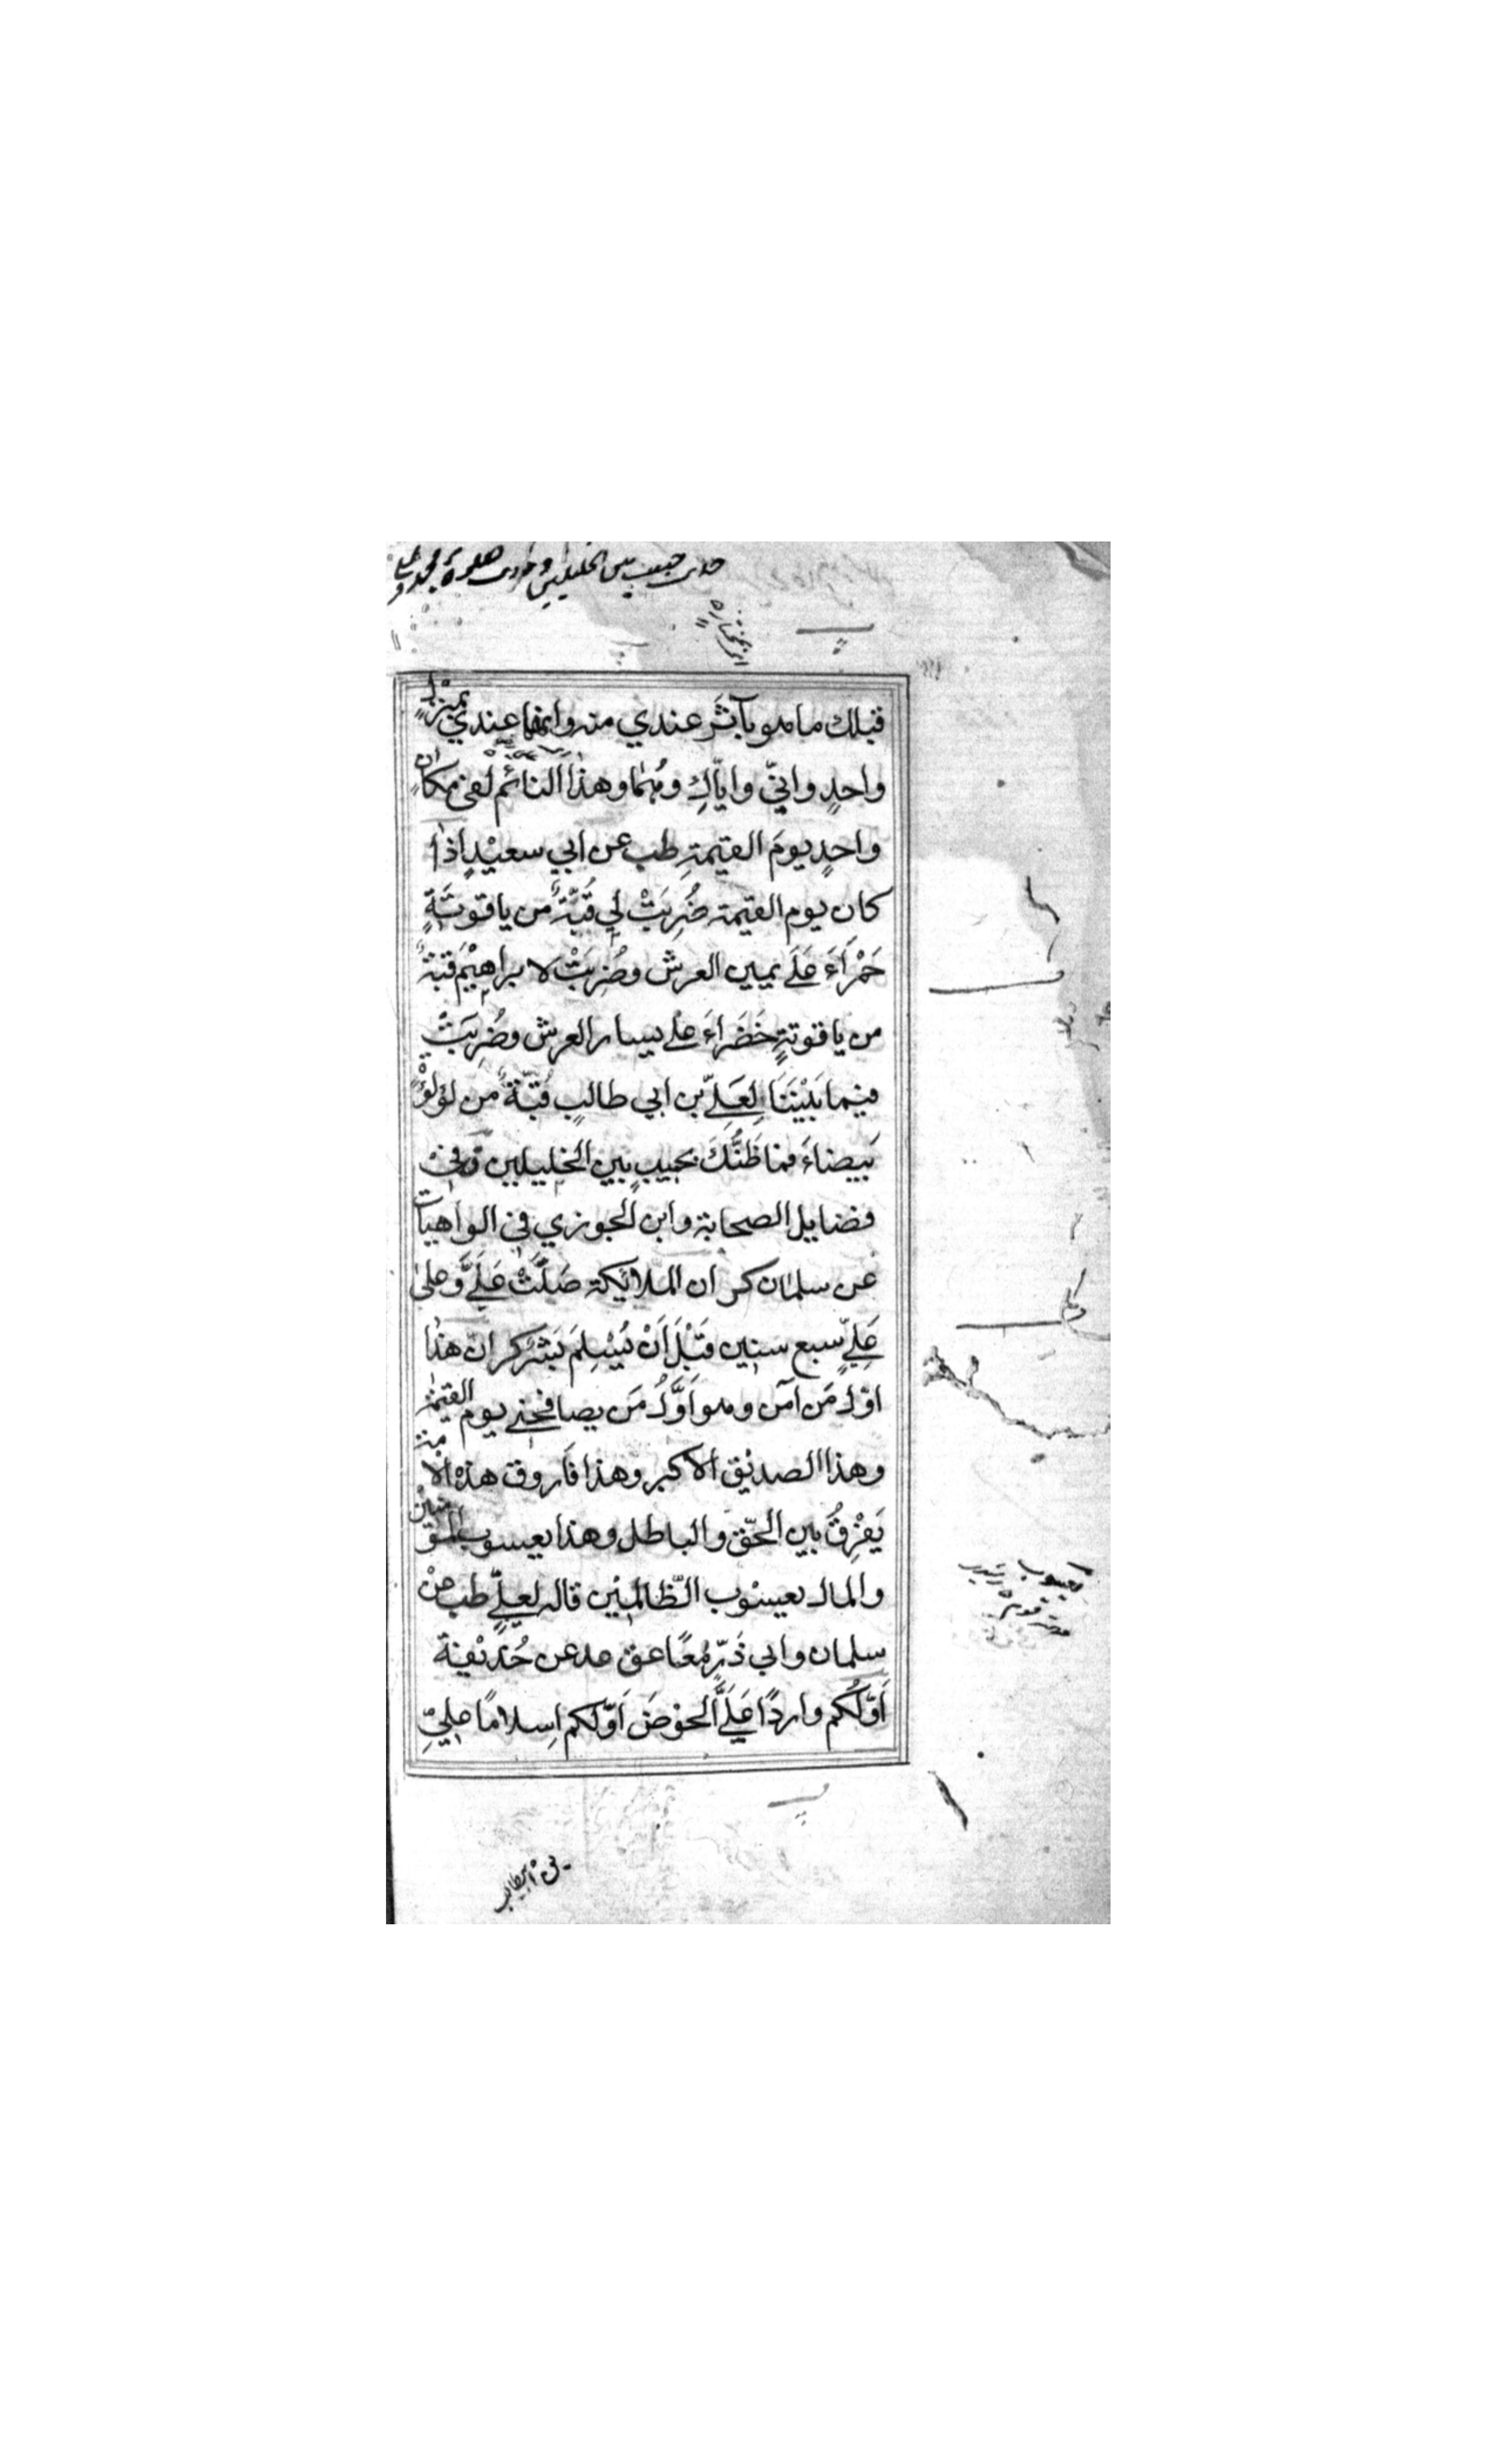 قبلك ما هو بآثَر عندي منه وانهما عندي بمنزل
واحدٍ وانيّ واياّكِ وهُمَا وهذا النائم لفي مكان
واحدٍ يومَ القيمةِ طب عن ابي سعيْدٍ اذا
كان يوم القيمة ضُرِبَتْ لي قُبّةٌ من ياقوتَةٍ
حَمْرَآءَ عَلَى يمين العرش وضُرِبَتْ لابراهِيْمَ قبةٌ
من ياقوتةٍ خَضَراءَ على يسار العرش وضُرِبَتْ
فيما بَيْنَنَا لِعَلِيّ بن ابي طالبٍ قُبّةٌ من لؤلؤٍ
بَيضاءَ فما ظَنُّكَ بحبيبٍ بين الخليلين ق في
فضايل الصحابة وابن الجوزي في الواهيات
عن سلمان كر ان الملائكة صَلَّتْ عَلَىَّ وعلى
عَلِيٍّ سبع سنين قَبْلَ اَنْ يُسْلِمَ بَشَرٌ كر انّ هذا
اوّل مَن آمن وهو اَوَّلُ مَن يصافحني يوم القيمة
وهذا الصديق الاكبر وهذا فَاروق هذه الامة
يَفْرِقُ بين الحقّ والباطل وهذا يعسوب المؤمنين
والمال يعسوب الظّالمين قاله لعليٍّ طب عن
سلمان وابي ذَرّ مَعًا عق عد عن حُذَيْفة
اَوّلُكم وارِدًا عَلَىَّ الحوضَ اَوّلكم اِسلامًا عليّ
بن ابيطالب